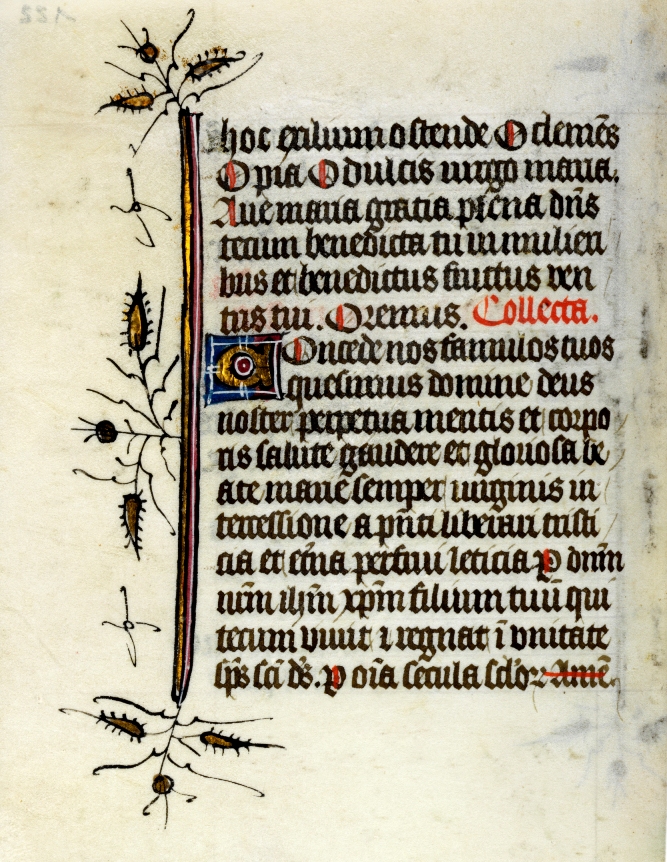 hoc exilium ostende O clemēs
O pia O dulcis uirgo maria.
Aue maria gracia plena dn̄s
tecum benedicta tu in mulieri
bus et benedictus fructus ven
tris tui. Oremus. Collecta.
Concede nos famulos tuos
quesumus domine deus
noster perpetua mentis et corpo
ris salute gaudere et gloriosa be
ate marie semper uirginis in
tercessione a pn̄ti liberari tristi
cia et et̄na perfrui leticia P dnm̄
nr̄m ihm̄ xpm̄ filium tuū qui
tecum viuit ⁊ regnat ī vnitate
sp̄s sc̄i ds̄. P oīa sēcula sclōꝝ Amē.